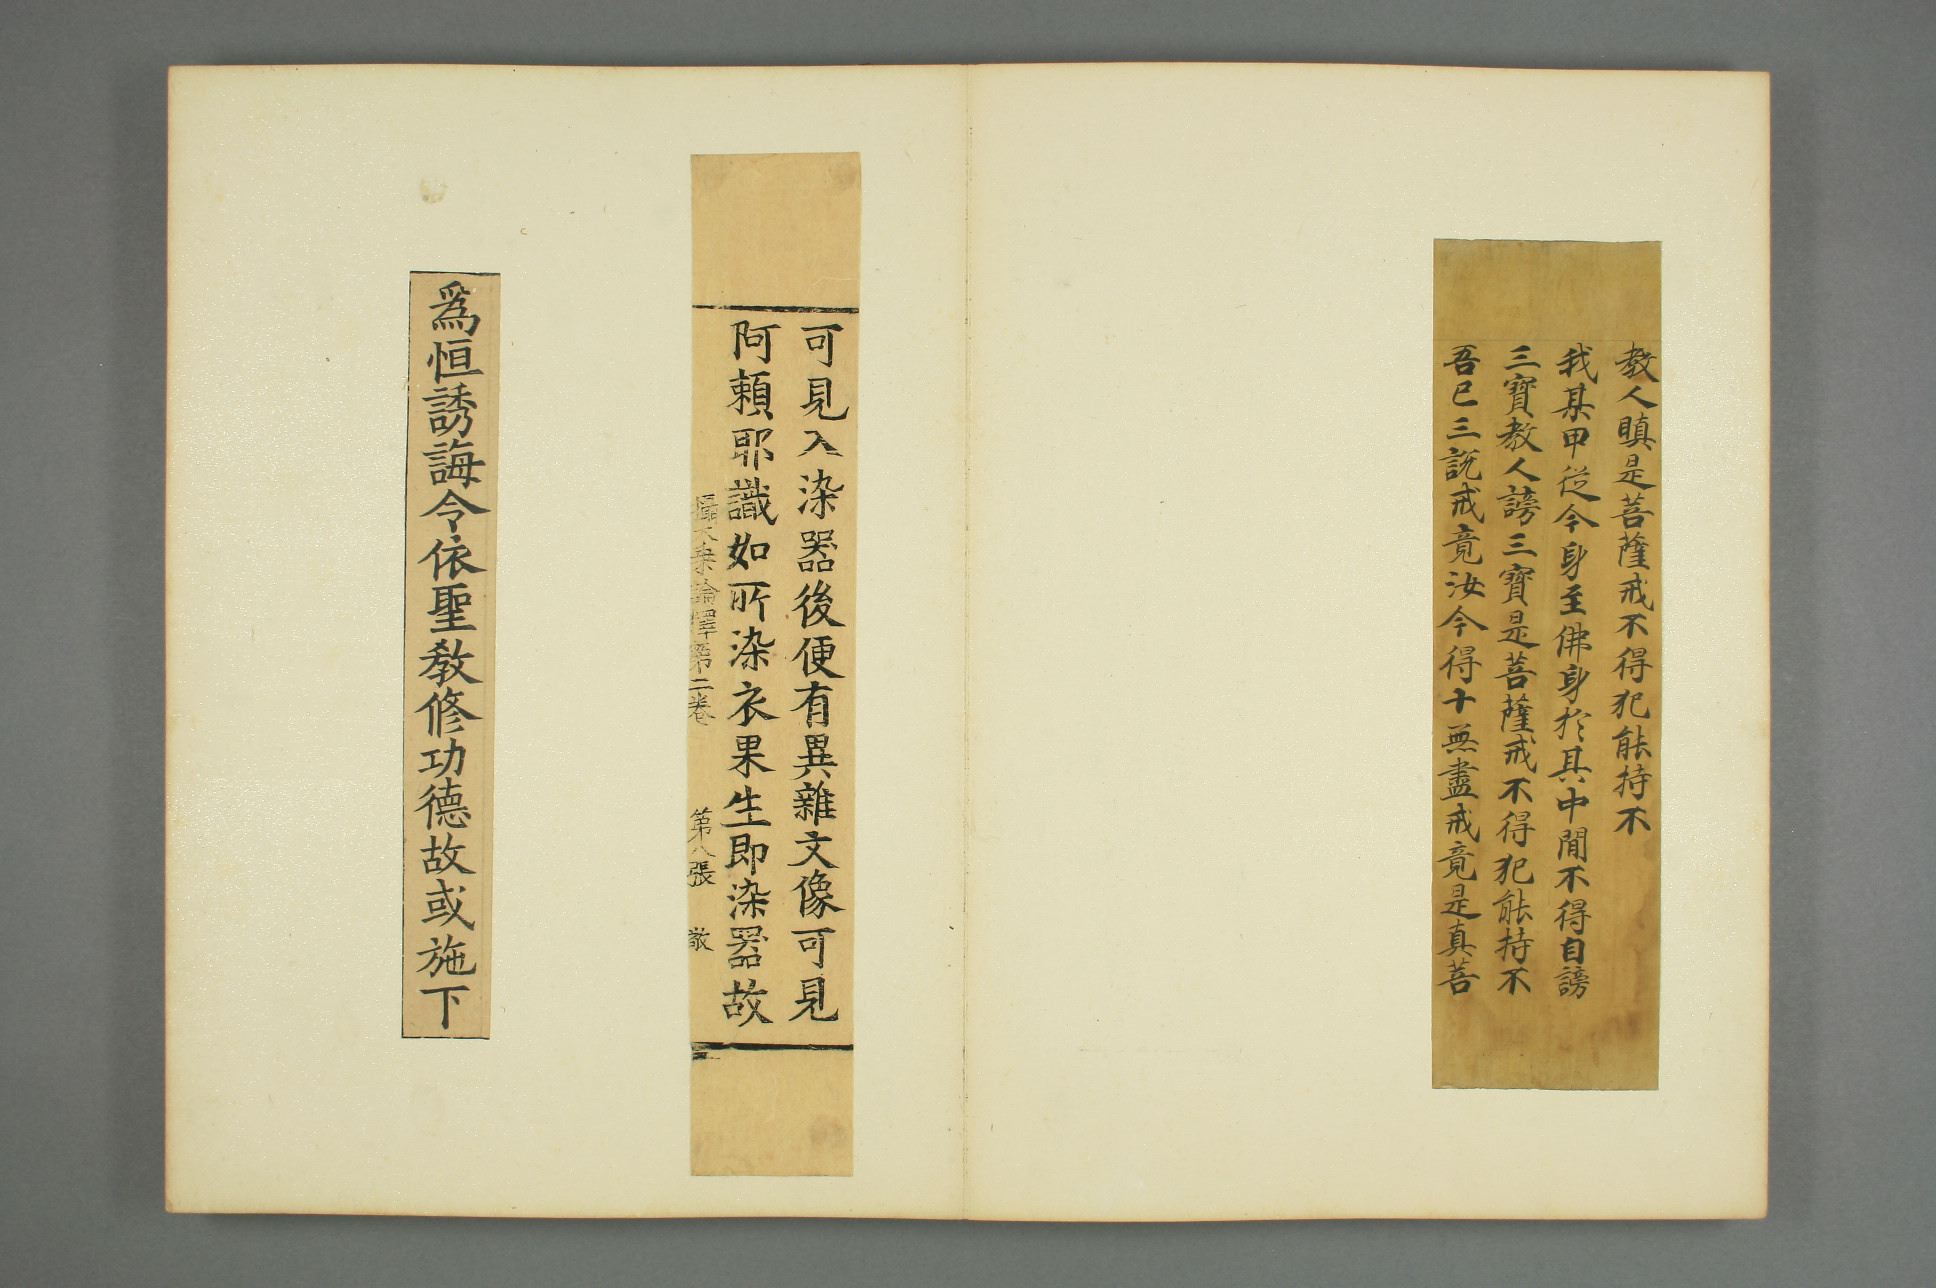 教人瞋是菩薩戒不得犯能持不
我某甲從今身至佛身於其中間不得自謗
三寶教人謗三寶是菩薩戒不得犯能持不
吾已三說戒竟汝今得十無盡戒竟是真菩
可見入染器後便有異雜文像可見
阿賴耶識如所染衣果生即染器故
攝大乗論釋第二卷 第八張 敬
為恒誘誨令依聖教修功德故或施下